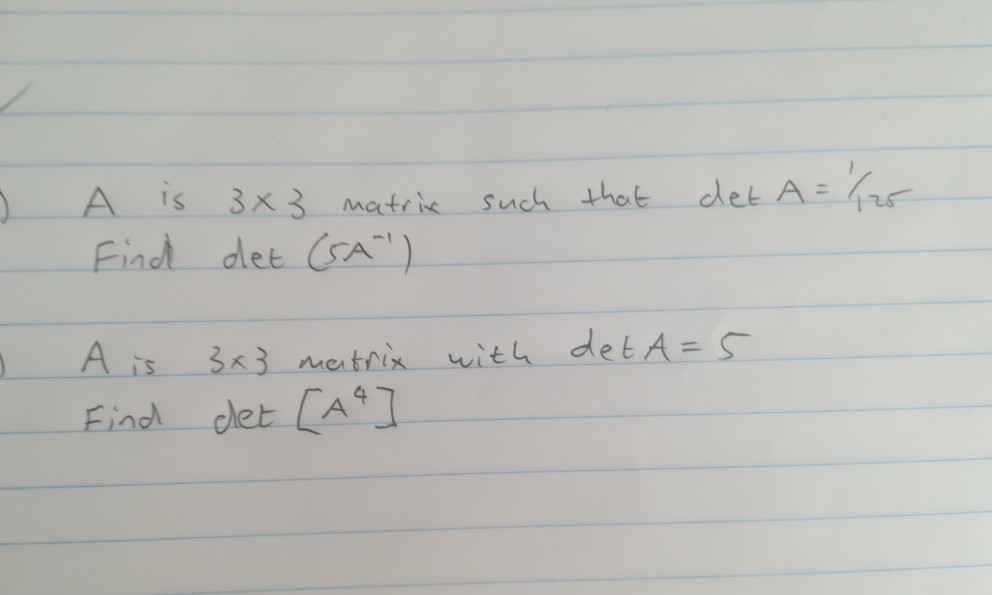 ) A is 3×3 matrix such that det A = 1/125
Find det (5A⁻¹)
) A is 3×3 matrix with det A = 5
Find det [A⁴]